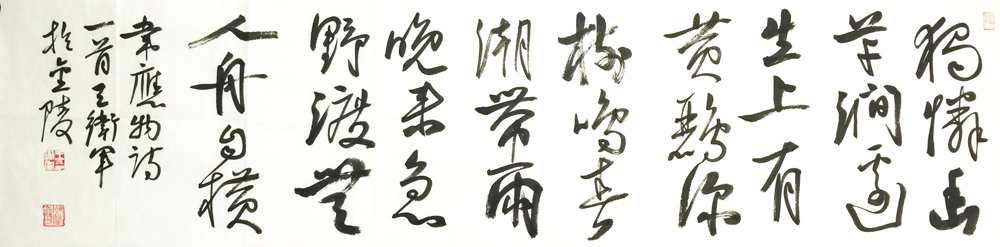 獨憐幽
草澗邊
生上有
黄鸝深
樹鳴春
潮帶雨
晚来急
野渡無
人舟自横
韋應物詩
一首王衛軍
於金陵